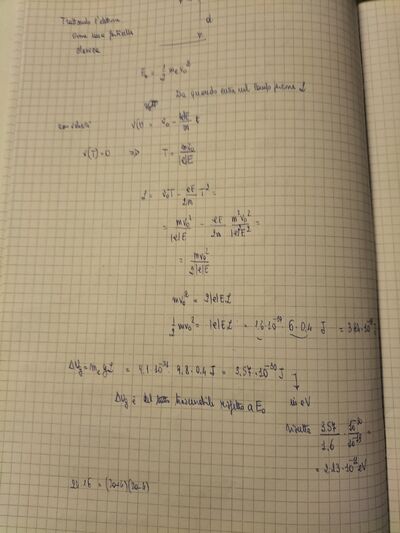 Trattando l'elettrone
come una particella
classica
d
E₀ = 1/2 mₑ v₀²
Da quando entra nel
v(t) = v₀ - |e|E/m t
v(T) = 0 => T = mv₀/|e|E
L = v₀T - eE/2m T²
= mv₀²/|e|E - eE/2m m²v₀²/|e|²E² =
= mv₀²/2|e|E
mv₀² = 2|e|EL
1/2 mv₀² = |e|EL = 1.6·10⁻¹⁹ · 6 · 0.4 J = 3.84·10⁻¹⁹ J
ΔUg = mₑ g L = 9.1·10⁻³¹ 9.8·0.4 J = 3.57·10⁻³⁰ J
ΔUg è del tutto trascurabile rispetto a E₀
in eV
3.57/1.6 10⁻³⁰/10⁻¹⁹ =
= 2.23·10⁻¹¹ eV